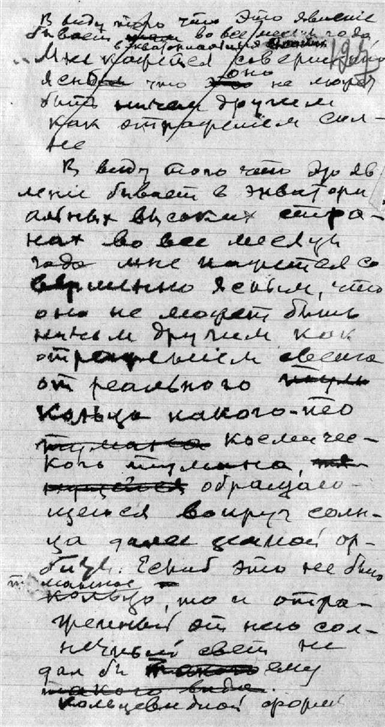 В виду того что это явленіе
бываетъ во все месяцы года
в экваториальных
195
Мне кажется совершенно
ясным что оно не может
быть ничем другим
как отражением сол-
не
В виду того что это яв
леніе бывает в экватори
альных высоких стра-
нах во все месяцы
года мне кажется со
вершенно ясным, что
оно не может быть
ничем другим как
отражением света
от реального
кольца какого-то
тумана космичес-
кого тумана,
обращаю-
щегося вокруг солн-
ца далее земной ор-
биты. Еслиб это не было
туманное
кольцо, то и отра-
женный от него сол-
нечный свет не
дал бы такого ему
такого вида.
кольцевидной формы